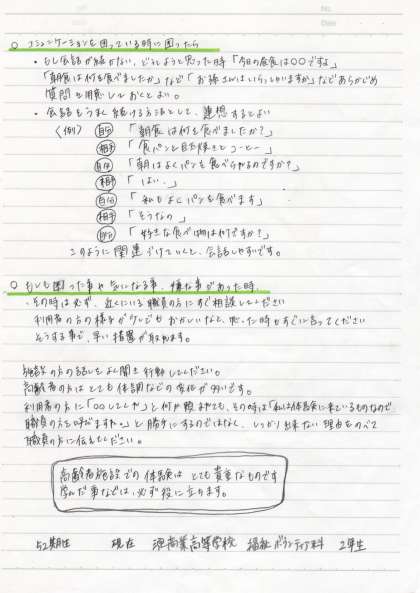 ○ コミュニケーションを図っている時に困ったら
・もし会話が続かない、どうしようと思った時「今日の昼食は○○ですよ」
「朝食は何を食べましたか」など「お孫さんはいらっしゃいますか」などあらかじめ
質問を用意しておくとよい。
・会話をうまく続ける方法として、連想するとよい
〈例〉 自分 「朝食は何を食べましたか？」
相手 「食パンと目玉焼きとコーヒー」
自分 「朝はよくパンを食べられるのですか？」
相手 「はい。」
自分 「私もよくパンを食べます」
相手 「そうなの」
自分 「好きな食べ物は何ですか？」
このように関連づけていくと、会話しやすいです。
○ もしも困った事や気になる事、嫌な事があった時、
・その時は必ず、近くにいる職員の方にすぐ相談してください
利用者の方の様子が少しでもおかしいなと、思った時もすぐに言ってください
そうする事で、早い措置が取れます。
施設の方の話しをよく聞き行動してください。
高齢者の方はとても体調などの変化が多いです。
利用者の方に「○○してんか」と何か頼まれても、その時は「私は体験に来ているものなので
職員の方を呼びますね。」と勝手にするのではなく、しっかり出来ない理由をのべて
職員の方に伝えてください。
高齢者施設での体験はとても貴重なものです
学んだ事などは必ず役に立ちます。
52期生 現在 商業高等学校 福祉ボランティア科 2年生